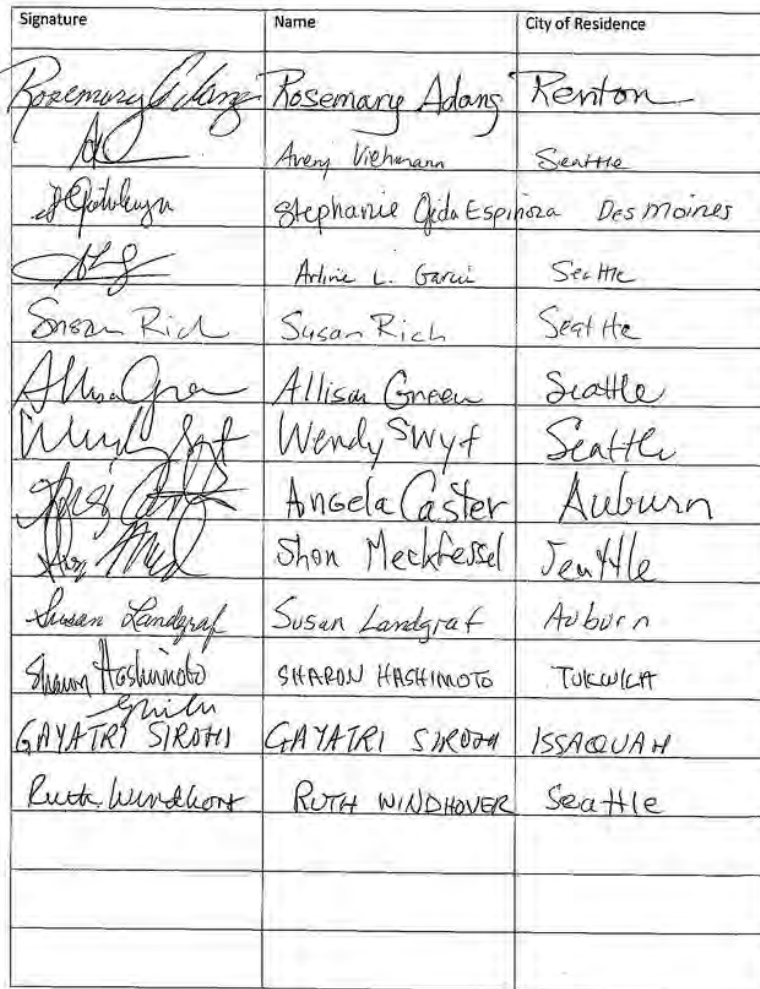 Signature Name City of Residence
Rosemary Adang Rosemary Adang Renton
Avery Viehmann Seattle
Stephanie Ojeda Espinoza Des Moines
Arline L. Garcia Seattle
Susan Rich Susan Rich Seattle
Allison Green Seattle
Wendy Swyt Seattle
Angela Caster Auburn
Shon Meckfessel Seattle
Susan Landgraf Susan Landgraf Auburn
Sharon Hashimoto SHARON HASHIMOTO TUKWILA
GAYATRI SIROHI GAYATRI SIROHI ISSAQUAH
Ruth Windhover RUTH WINDHOVER Seattle